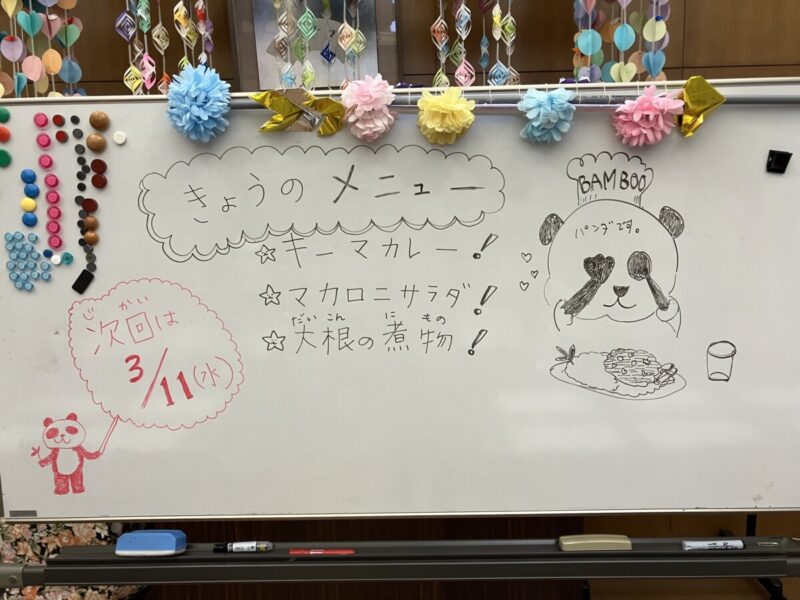 きょうのメニュー
☆キーマカレー!
☆マカロニサラダ!
だいこん に もの
☆大根の煮物!
BAMBOO
パンダです。
じかい
次回は…
3/11(水)